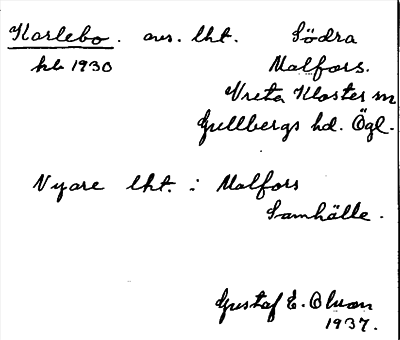 Karlebo. avs. lht. Södra
hb 1930 Malfors.
Vreta Kloster sn
Gullbergs hd. Ögl.
Nyare lht. i Malfors
Samhälle.
Gustaf E. Olsson
1937.